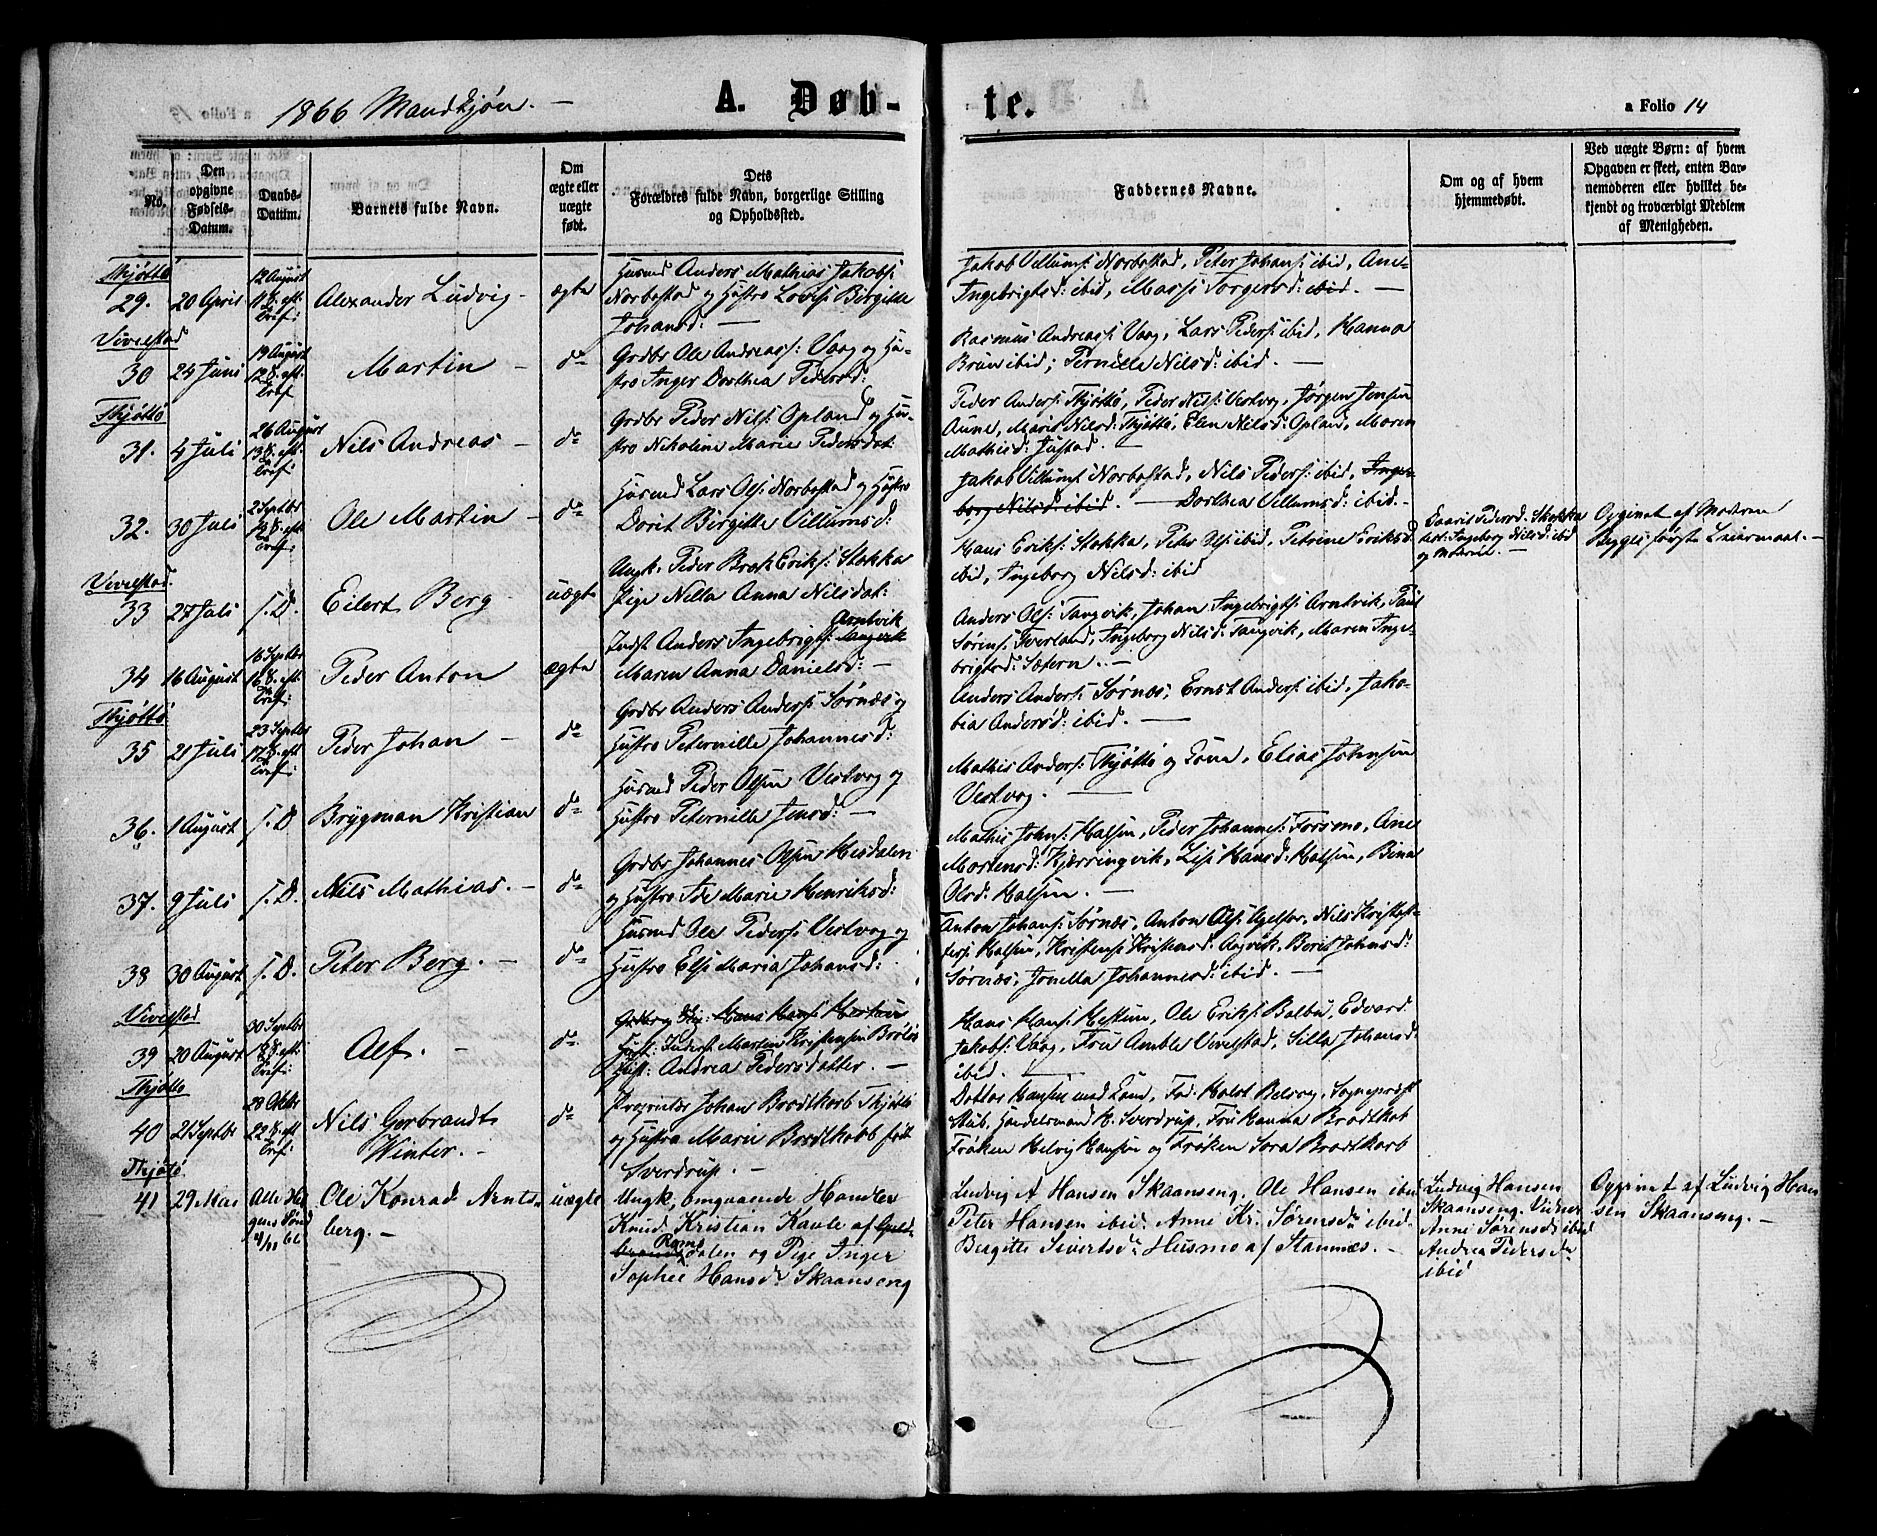 1866 Mandkjøn. —
A. Døb-
te.
a Folio 14
No.
Den opgivne Fødsels-Datum.
Daabs-Datum.
Barnets fulde Navn.
Om ægte eller uægte født.
Dets Forældres fulde Navn, borgerlige Stilling og Opholdssted.
Faddernes Navne.
Om og af hvem hjemmedøbt.
Ved uægte Børn: af hvem Opgaven er skeet, enten Barnemoderen eller hvilket bekjendt og troværdigt Medlem af Menigheden.
Thjøttø
29. 20 April 12 August 11 S. eft: Tref: Alexander Ludvig - ægte
Husmd Anders Mathias Jakobs:
Norbostad og Hustro Lovise Birgitte
Johansd: —
Jakob Villums: Norbostad, Peter Johans: ibid, Ane
Ingebrigtsd: ibid, Torgersd: ibid. —
Vivelstad
30 24 Juni 19 August 12 S. eft: Tref Martin - do
Grdbr Ole Andreass: Vaag og Hu-
stro Inger Dorthea Pedersd:
Rasmus Andreass: Vaag, Lars Peders: ibid, Hanna
Brun ibid; Pernille Nilsd: ibid. —
Thjøttø
31. 4 Juli 26 August 13 S. eft: Tref: Nils Andreas - do
Grdbr Peder Nils: Opland og Hu-
stro Nikoline Marie Pedersdat
Peder Anders: Thjøttø, Peder Nils: Vestvog, Jørgen Jensen
Aune, Maris Nilsd: Thjøttø, Elen Nilsd: Opland, Maren
Mathisd: Justad.
32. 30 Juli 2 Septbr 14 S. eft: Tref: Ole Martin - do
Husmd Lars Ols: Norbostad og Hustro
Dorit Birgitte Villumsd:
Jakob Villums: Norbostad, Nils Peders: ibid, Inge-
borg Nilsd ibid. — Dorthea Villumsd: ibid. -
Vivelstad.
33 27 Juli s. D. Eilert Berg - uægte
Ungk: Peder Brok Eriks: Stokka
Pige Nella Anna Nilsdat:
Hans Eriks: Stokka, Peter Ols: ibid, Petrine Eriksd
ibid, Ingeborg Nilsd: ibid
Pedersd. Stokka
test: Ingeborg Nilsd: ibid
og Moderen. —
Opgivet af Moderen
Begges første Leiermaal. —
34 16 August 16 Septbr 16 S. eft: Tref: Peder Anton ægte
Indst Anders Ingebrigts: Tangvik Arntvik
Maren Anna Danielsd: —
Anders Ols: Tangvik, Johan Ingebrigts: Arntvik, Paul
Sørens: Tverland, Ingeborg Nilsd: Tangvik, Maren Inge-
brigtsd: Sætern. —
Thjøttø
35 21 Juli 23 Septbr 17 S. eft Tref: Peder Johan - do
Grdbr Anders Anders: Sørnæs og
Hustro Peternille Johannesd:
Anders Anders: Sørnæs, Ernst Anders: ibid, Jako-
bia Andersd: ibid. —
36. 1 August s. D Brygman Kristian do
Husmd Peder Olsen Vestvog og
Hustro Peternille Jensd: —
Mathis Anders: Thjøttø og Kone, Elias Johnsen
Vestvog. —
37. 9 Juli s. D. Nils Mathias. - do
Grdbr Johannes Olsen Hesdalen
og Hustro Ide Marie Henriksd:
Mathis Johns: Halsen, Peder Johannes: Forsmo, Ane
Mortensd: Kjærringvik, Lise Hansd: Halsen, Bina
Olsd: Halsen. —
38 30 August s. D. Peter Berg. - do
Husmd Ole Peders: Vestvog og
Hustro Else Maria Johansd:
Anton Johans: Sørnæs, Anton Ols: Nils Kristof-
fers: Halsen, Kristensd: Berit Johnsd:
Sørnæs, Jonella Johannesd: ibid. —
Vivelstad
39 20 August 30 Septbr 18 S. eft: Tref: Alf. - do
Hans Hans:
Inderst Morten Kristensen
Hust: Andrea Pedersdatter. —
Hans Hans: Ole Eriks: Edvard
Jakobs: Vaag, Fru Amble Vivelstad, Silla Johansd:
ibid. —
Thjøttø
40 21 Septbr 28 Oktbr 22 S. eft Tref: Nils Gerbrandt Winter. - do
Proprietær Johan Brodtkorb Thjøttø
og Hustro Marie Brodtkobb født
Sverdrup. —
Dottor Hansen med Kone, Holst Sogneprest
Handelsmand H. Sverdrup, Fru Hanna Brodtkob
Frøken Helvig Hansen og Frøken Sara Brodtkorb
Thjøtø
41 29 Mai Alle Hel- gens Sønd 4/11 66 Ole Konrad Arnts- berg. - uægte
Ungk, omgaaende Handler
Knud Kristian Kaule af Guld-
brandsdalen Roms og Pige Inger
Sophie Hansd: Skaanseng
Ludvig A Hansen Skaanseng. Ole Hansen ibid
Peter Hansen ibid Anne Kr. Sørensd: ibid.
Bergitte Sivertsdr Husmo af Stamnæs. —
Ludvig Hansen
Skaanseng. Vidner
Anne Sørensdr ibid
Andrea Pedersdr
ibid
Opgivet af Ludvig Han
sen Skaanseng. —